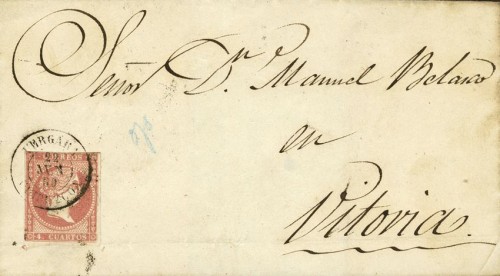 Señor Dn. Manuel Belasco
en
Vitoria
VERGARA
22
CORREOS
4 CUARTOS